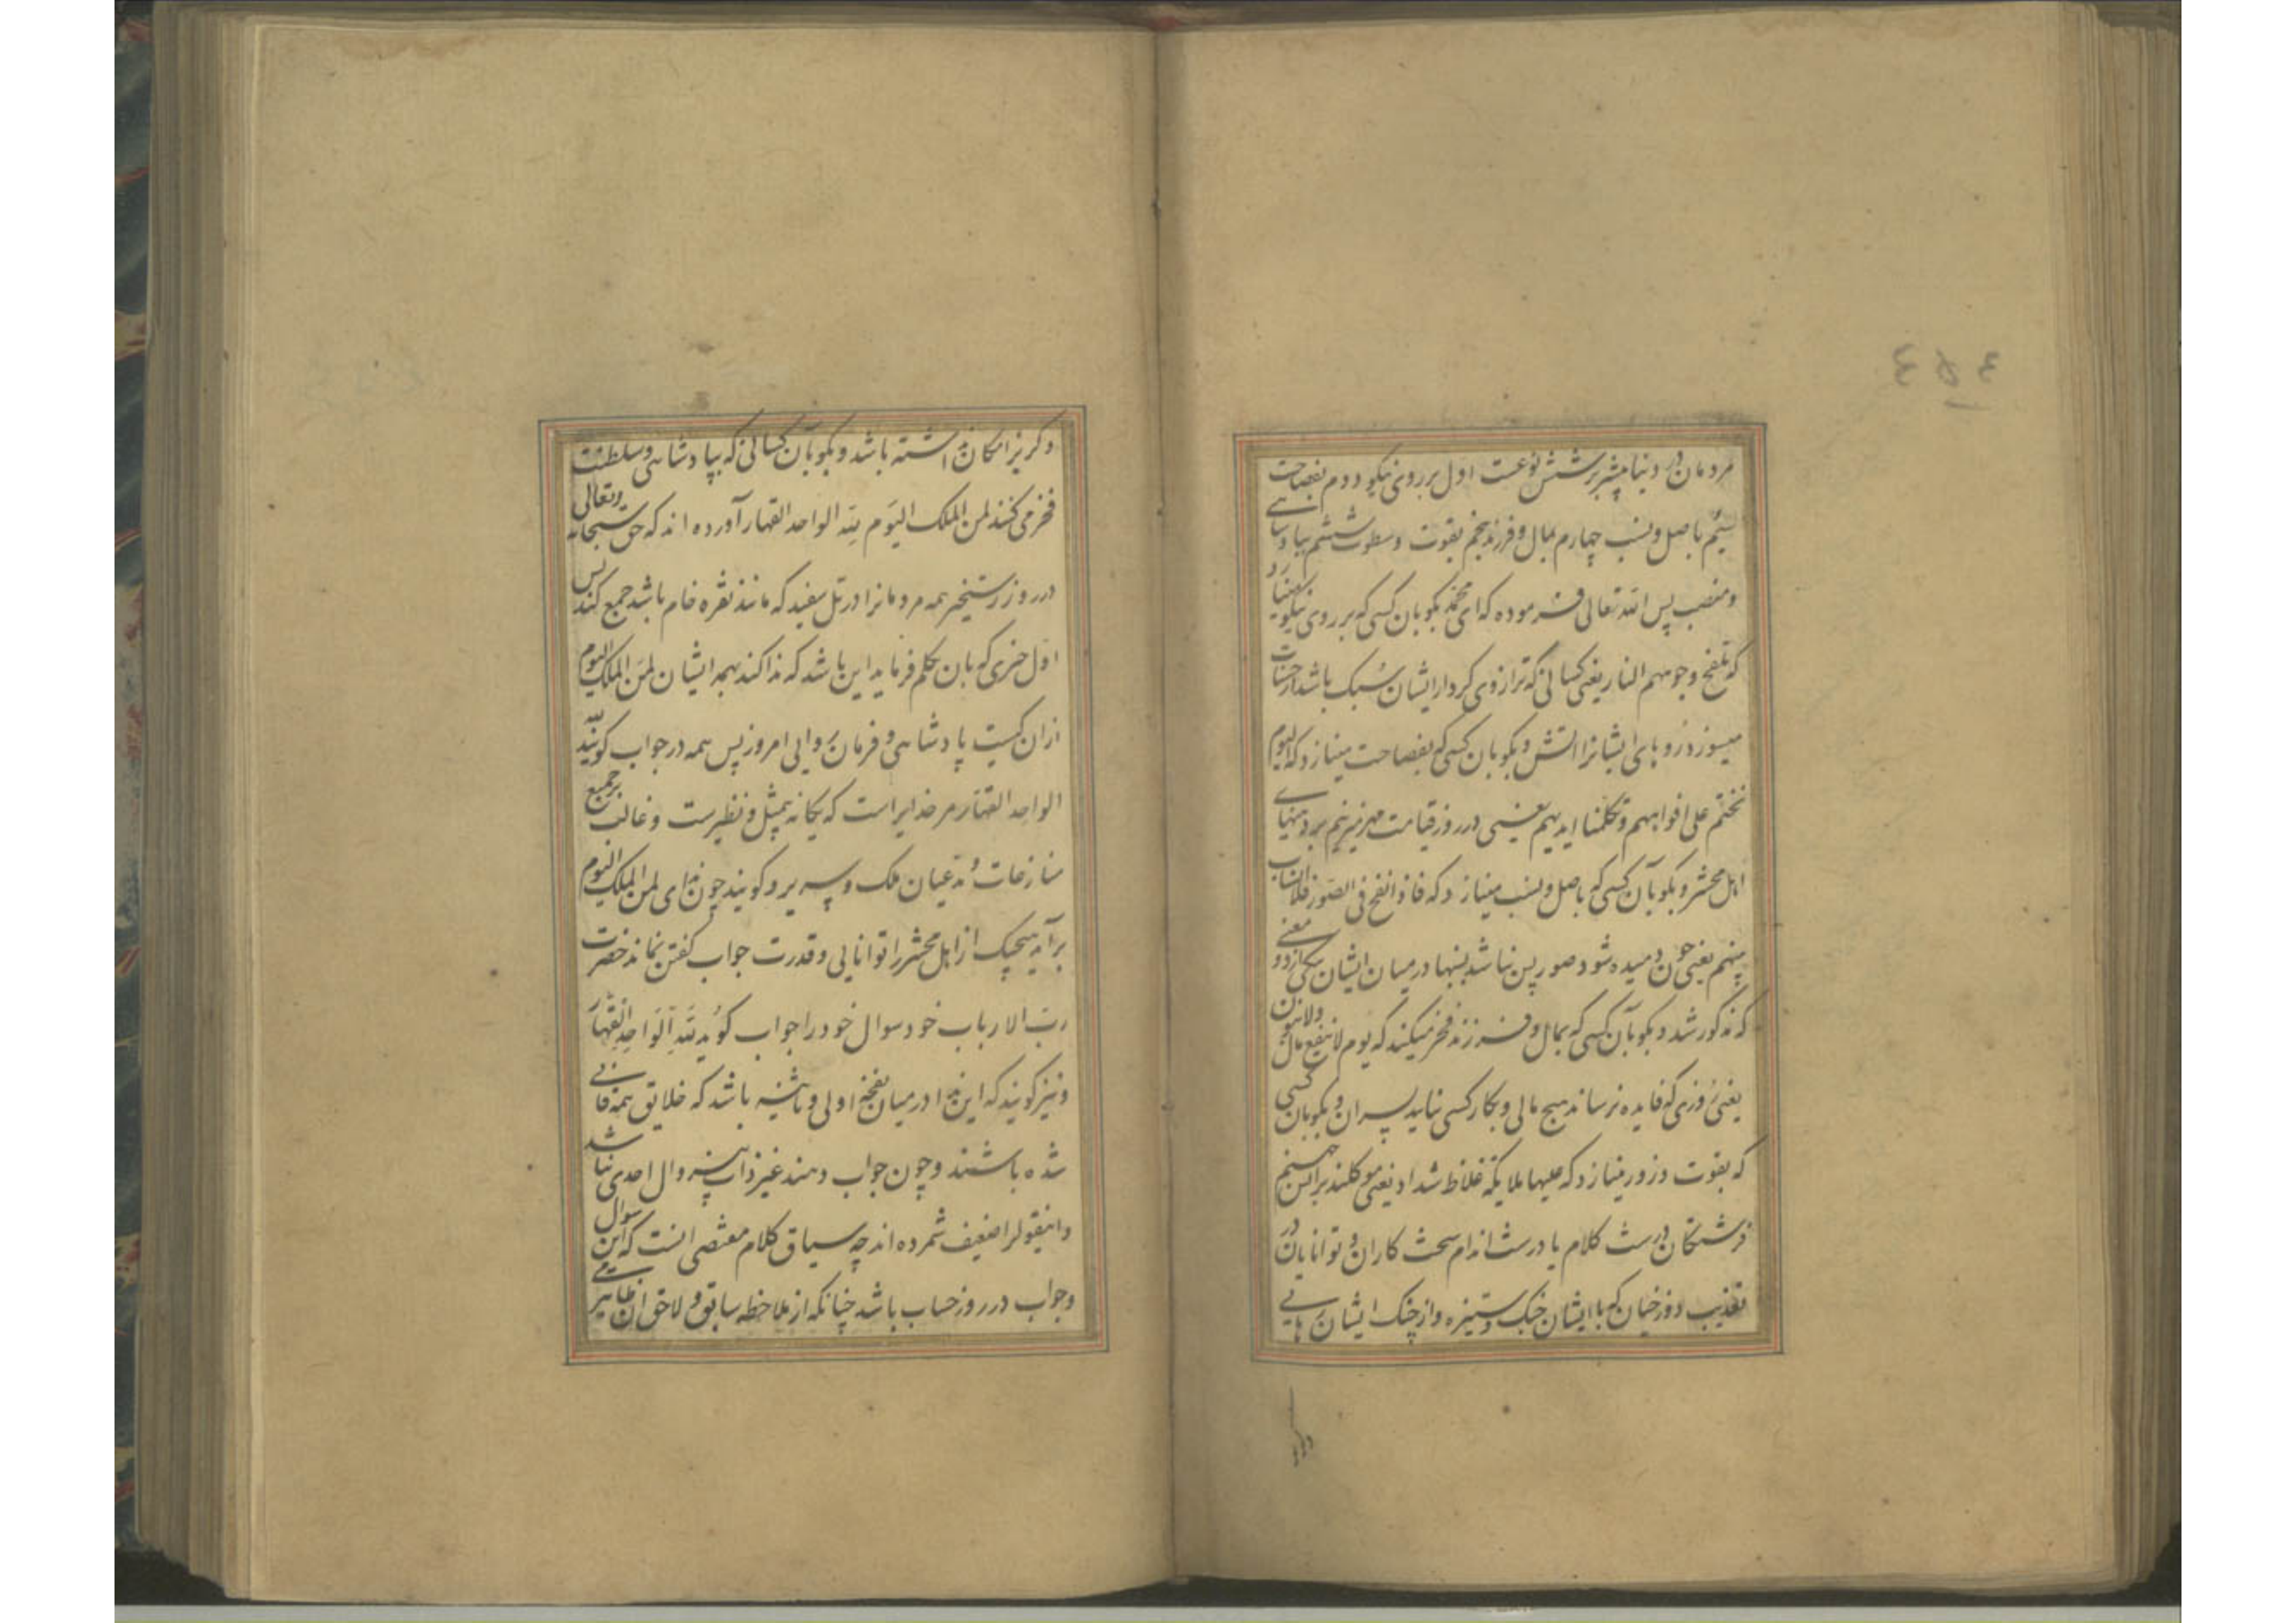 مردمان در دنیا بیشتر بر شش نوعست اول بر روی نیکو دوم بفصاحت
سیّم باصل و نسب چهارم بمال و فرزند پنجم بقوت و سطوت ششم بپادشاهی
و منصب پس الله تعالی فرموده که ای محمد بکو بآن کسی که بر روی نیکو مینازد
که تلفح وجوههم النار یعنی کسانی که ترازوی کردار ایشان سُبک باشد از حسنات
میسوزد رویهای ایشانرا آتش و بکو بآن کسی که بفصاحت مینازد که الیوم
نختم علی افواههم و تکلمنا ایدیهم یعنی در روز قیامت مهر میزنیم بر دهنهای
اهل محشر و بکو بآن کسی که باصل و نسب مینازد که فاذا نفخ فی الصور فلا انساب
بینهم یعنی چون دمیده شود صور پس نباشد نسبها در میان ایشان بیکی از دو معنی
که مذکور شد و بکو بآن کسی که بمال و فرزند فخر میکند که یوم لا ینفع مال ولا بنون
یعنی روزی که فایده نرساند هیچ مالی و بکار کسی نیاید پسران و بکو بآن کسی
که بقوت و زور مینازد که علیها ملایکة غلاظ شداد یعنی موکلند بر آتش جهنم
فرشتکان درشت کلام یا درشت اندام سخت کاران و توانایان در
تعذیب دوزخیان که با ایشان جنک و ستیزه و از چنک ایشان رهایی
وکریز
وکریز امکان نداشته باشد و بکو بآن کسانی که بپادشاهی و سلطنت
فخر می کنند لمن الملک الیَوم لله الواحد القهار آورده اند که حق سبحانه وتعالی
در روز رستخیز همه مردمانرا در تل سفید که مانند نقره خام باشد جمع کند پس
اوّل چیزی که بآن تکلم فرماید این باشد که ندا کند بهمه ایشان لمَن الملک الیوم
از آن کیست پادشاهی و فرمان روایی امروز پس همه در جواب کویند لله
الواحد القهّار مر خدایراست که یکانه بیمثل و نظیرست و غالب بر جمیع
منازعات و مدعیان ملک و سریر و کویند چون ندای لمن الملک الیوم
برآید هیچیک از اهل محشر را توانایی و قدرت جواب کفتن نماند حضرت
ربّ الارباب خود سوال خود را جواب کوید لله الواحد القهار
و نیز کویند که این ندا در میان نفخه اولی و ثانیه باشد که خلایق همه فانی
شده باشند و چون جواب دهند غیر ذات احدی نباشد
و اینقولرا ضعیف شمرده اند چه سیاق کلام مقتضی آنست که این سوال
و جواب در روز حساب باشد چنانکه از ملاحظه سابق و لاحق آن ظاهر